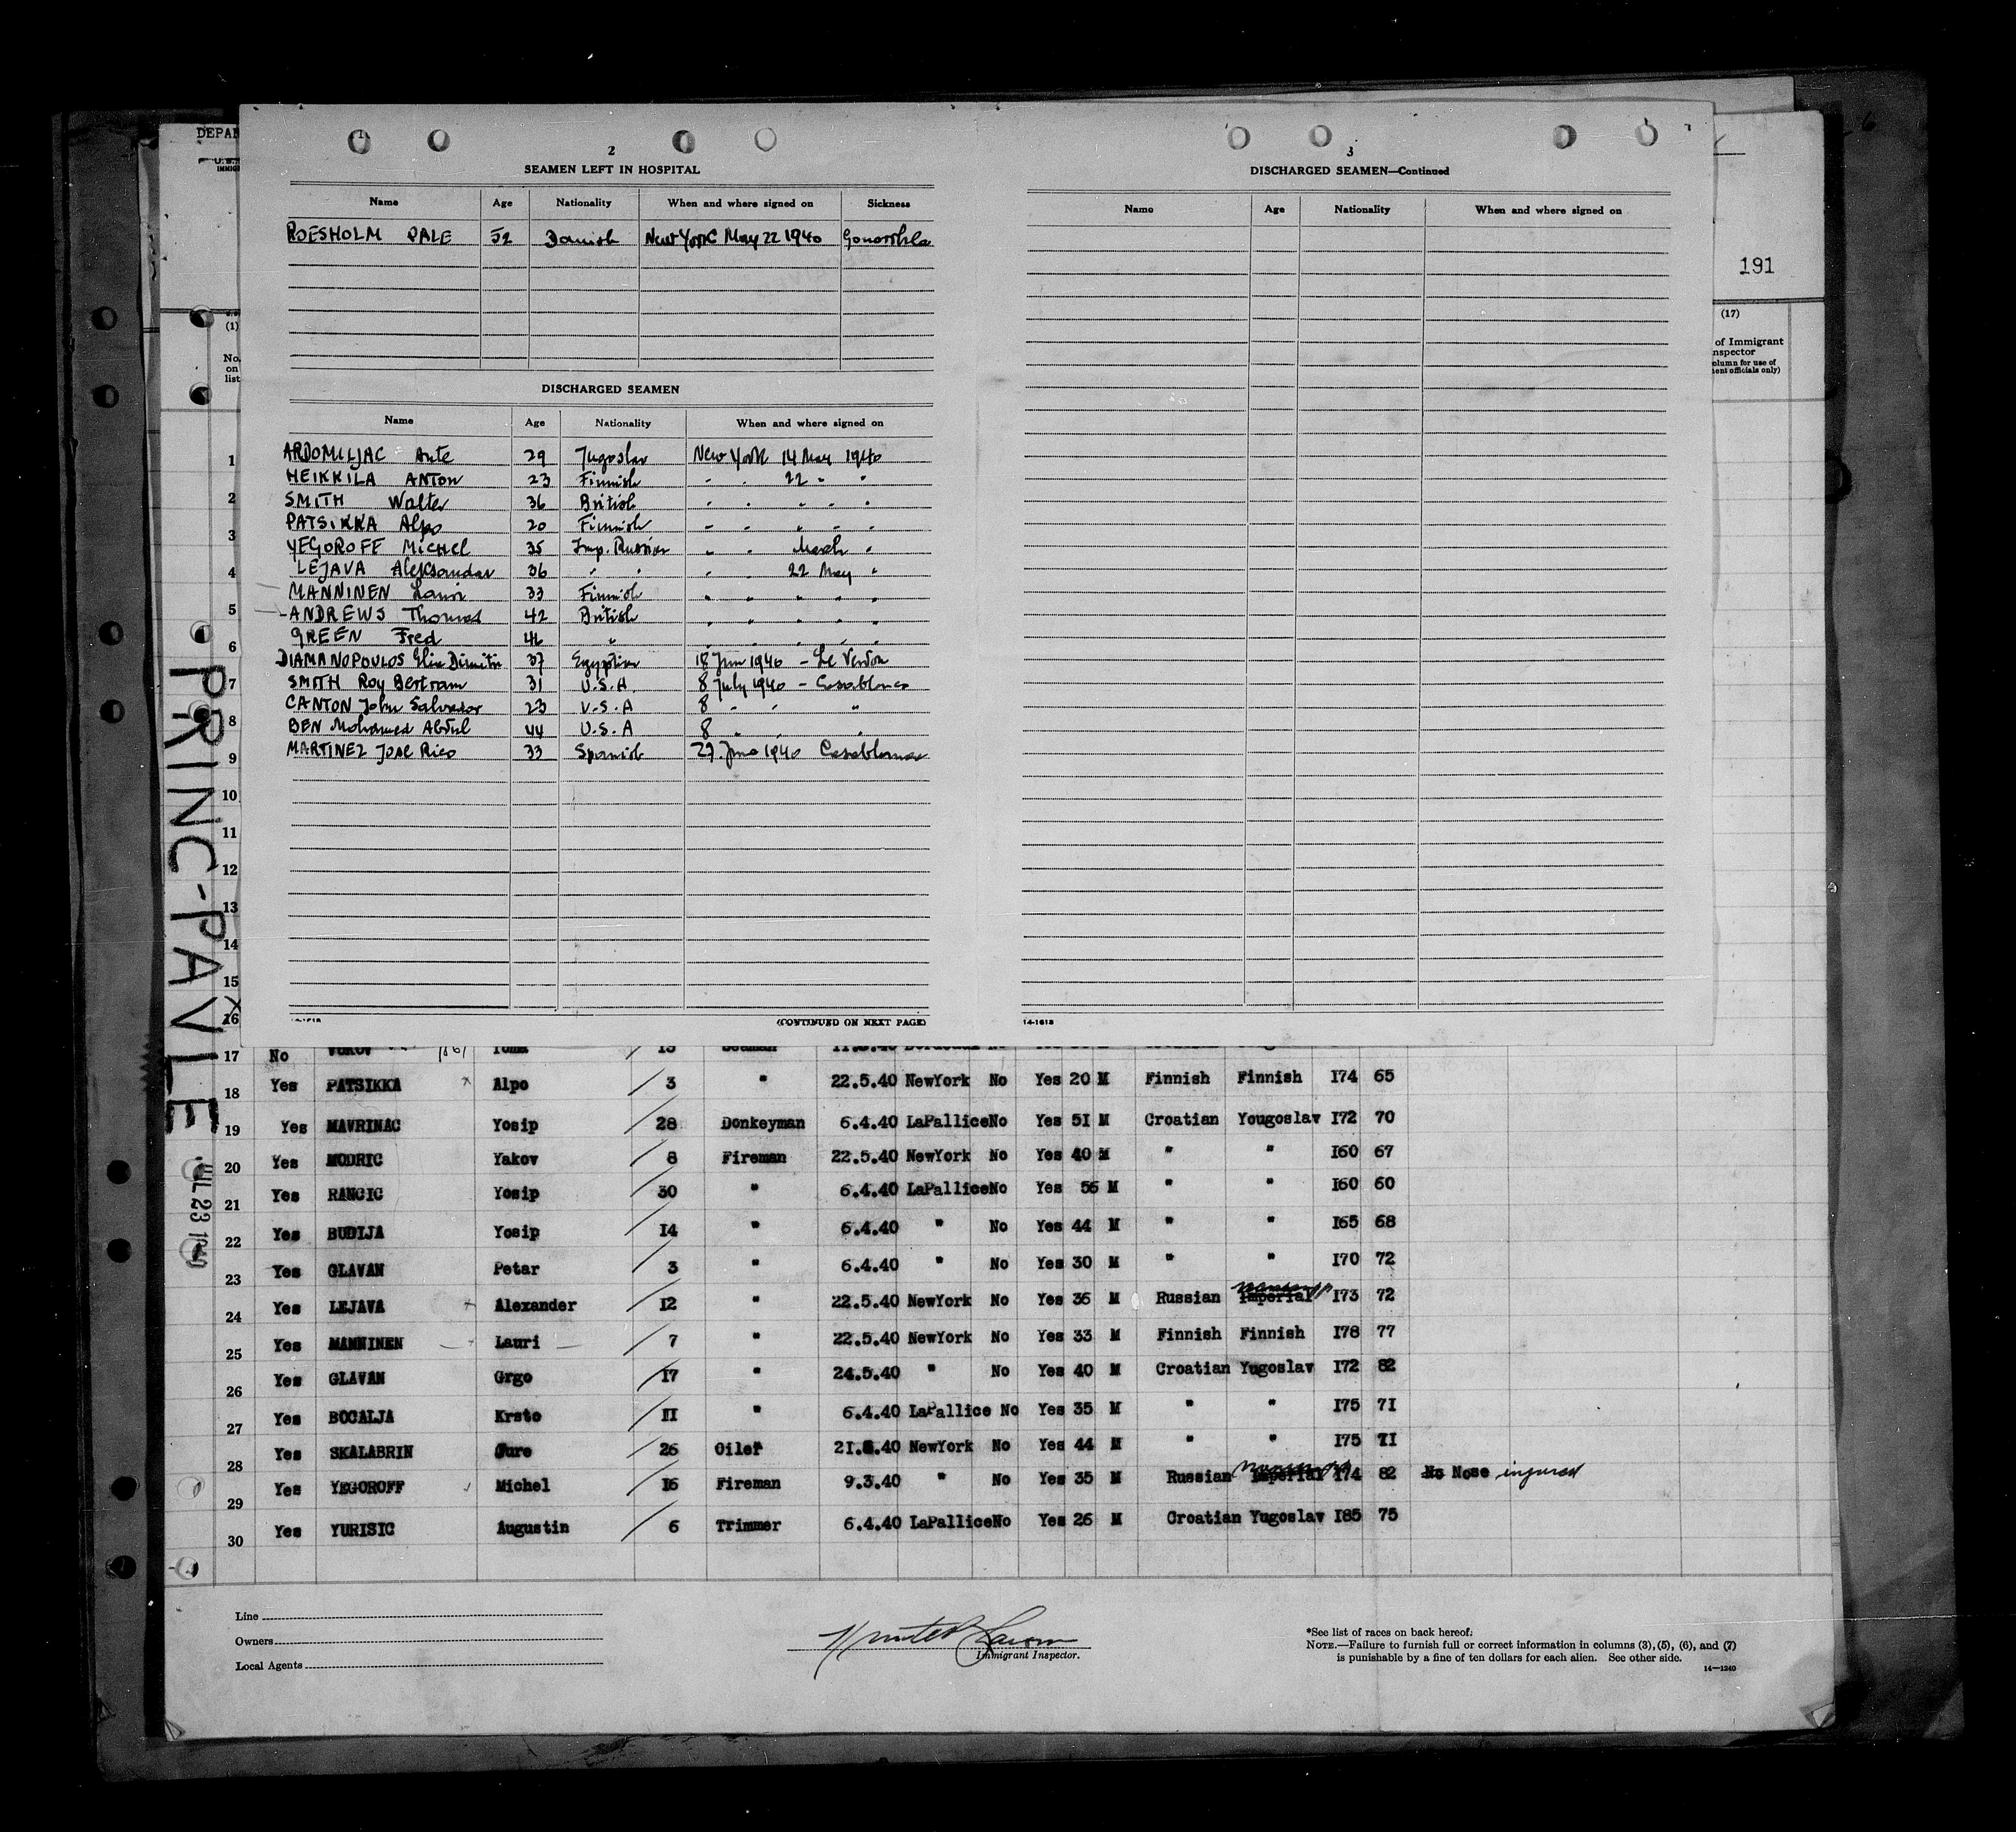 DEPAR
2
SEAMEN LEFT IN HOSPITAL
Name Age Nationality When and where signed on Sickness
ROESHOLM PALE 52 Danish New York May 22 1940 Gonorrhea
DISCHARGED SEAMEN
Name Age Nationality When and where signed on
ARDOMILJAC Ante 29 Jugoslav New York 14 May 1940
HEIKKILA ANTON 23 Finnish " " 22 " "
SMITH Walter 36 British " " " " "
PATSIKKA Alpo 20 Finnish " " " " "
YEGOROFF MICHEL 35 Imp. Russian " " March "
LEJAVA Aleksandar 36 " " " " 22 May "
MANNINEN Lauri 33 Finnish " " " " "
ANDREWS Thomas 42 British " " " " "
GREEN Fred 46 " " " " " "
DIAMANOPOULOS Elia Dimitri 37 Egyptian 18 Jun 1940 - Le Verdon
SMITH Roy Bertram 31 U.S.A. 8 July 1940 - Casablanca
CANTON John Salvador 23 U.S.A 8 " " "
BEN Mohamed Abdul 44 U.S.A 8 " " "
MARTINEZ Jose Rico 33 Spanish 27 June 1940 Casablanca
(CONTINUED ON NEXT PAGE)
3
DISCHARGED SEAMEN—Continued
Name Age Nationality When and where signed on
14-1618
191
(17)
of Immigrant
nspector
olumn for use of
ment officials only)
(1)
No.
on
list
1
2
3
4
5
6
7
8
9
10
11
12
13
14
15
16
PRINC-PAVLE
JUL 23 1940
17 No VUKOV Toma 15 Seaman
18 Yes PATSIKKA Alpo 3 " 22.5.40 NewYork No Yes 20 M Finnish Finnish I74 65
19 Yes MAVRINAC Yosip 28 Donkeyman 6.4.40 LaPallice No Yes 5I M Croatian Yougoslav I72 70
20 Yes MODRIC Yakov 8 Fireman 22.5.40 NewYork No Yes 40 M " " I60 67
21 Yes RANCIC Yosip 30 " 6.4.40 LaPallice No Yes 56 M " " I60 60
22 Yes BUDIJA Yosip I4 " 6.4.40 " No Yes 44 M " " I65 68
23 Yes GLAVAN Petar 3 " 6.4.40 " No Yes 30 M " " I70 72
24 Yes LEJAVA Alexander I2 " 22.5.40 NewYork No Yes 36 M Russian Imperial I73 72
25 Yes MANNINEN Lauri 7 " 22.5.40 NewYork No Yes 33 M Finnish Finnish I78 77
26 Yes GLAVAN Grgo I7 " 24.5.40 " No Yes 40 M Croatian Yugoslav I72 82
27 Yes BOCALJA Krsto II " 6.4.40 LaPallice No Yes 35 M " " I75 7I
28 Yes SKALABRIN Jure 26 Oiler 2I.5.40 NewYork No Yes 44 M " " I75 7I
29 Yes YEGOROFF Michel I6 Fireman 9.3.40 " No Yes 35 M Russian Imperial I74 82 No Nose injured
30 Yes YURISIC Augustin 6 Trimmer 6.4.40 LaPallice No Yes 26 M Croatian Yugoslav I85 75
Line
Owners
Local Agents
Immigrant Inspector.
*See list of races on back hereof.
NOTE.—Failure to furnish full or correct information in columns (3), (5), (6), and (7)
is punishable by a fine of ten dollars for each alien. See other side.
14—1240